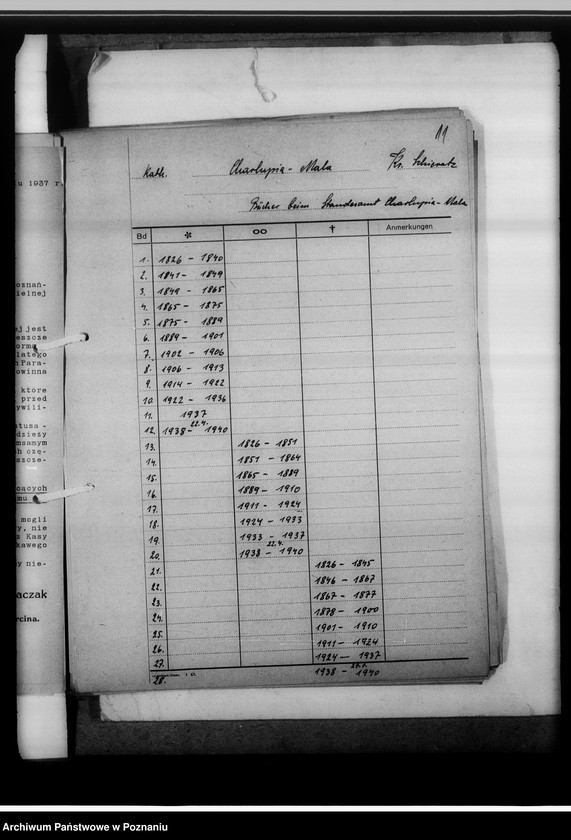 11
Kath. Charlupia-Mala Kr. Schieratz
Bücher beim Standesamt Charlupia-Mala
Bd * oo † Anmerkungen
1. 1826 - 1840
2. 1841 - 1849
3. 1849 - 1865
4. 1865 - 1875
5. 1875 - 1889
6. 1889 - 1901
7. 1902 - 1906
8. 1906 - 1913
9. 1914 - 1922
10. 1922 - 1936
11. 1937
12. 1938 - 22.4. 1940
13. 1826 - 1851
14. 1851 - 1864
15. 1865 - 1889
16. 1889 - 1910
17. 1911 - 1924
18. 1924 - 1933
19. 1933 - 1937
20. 1938 - 22.4. 1940
21. 1826 - 1845
22. 1846 - 1867
23. 1867 - 1877
24. 1878 - 1900
25. 1901 - 1910
26. 1911 - 1924
27. 1924 - 1937
28. 1938 - 1940
u 1937 r.
oznań-
ielnej
ej jest
eszcze
orma
latego
Para-
owinna
które
przed
ywili-
atusa -
dzieży
msanym
h czę-
szcze-
ących
mu
mogli
y, nie
z Kasy
kawego
y nie-
aczak
rcina.
Archiwum Państwowe w Poznaniu